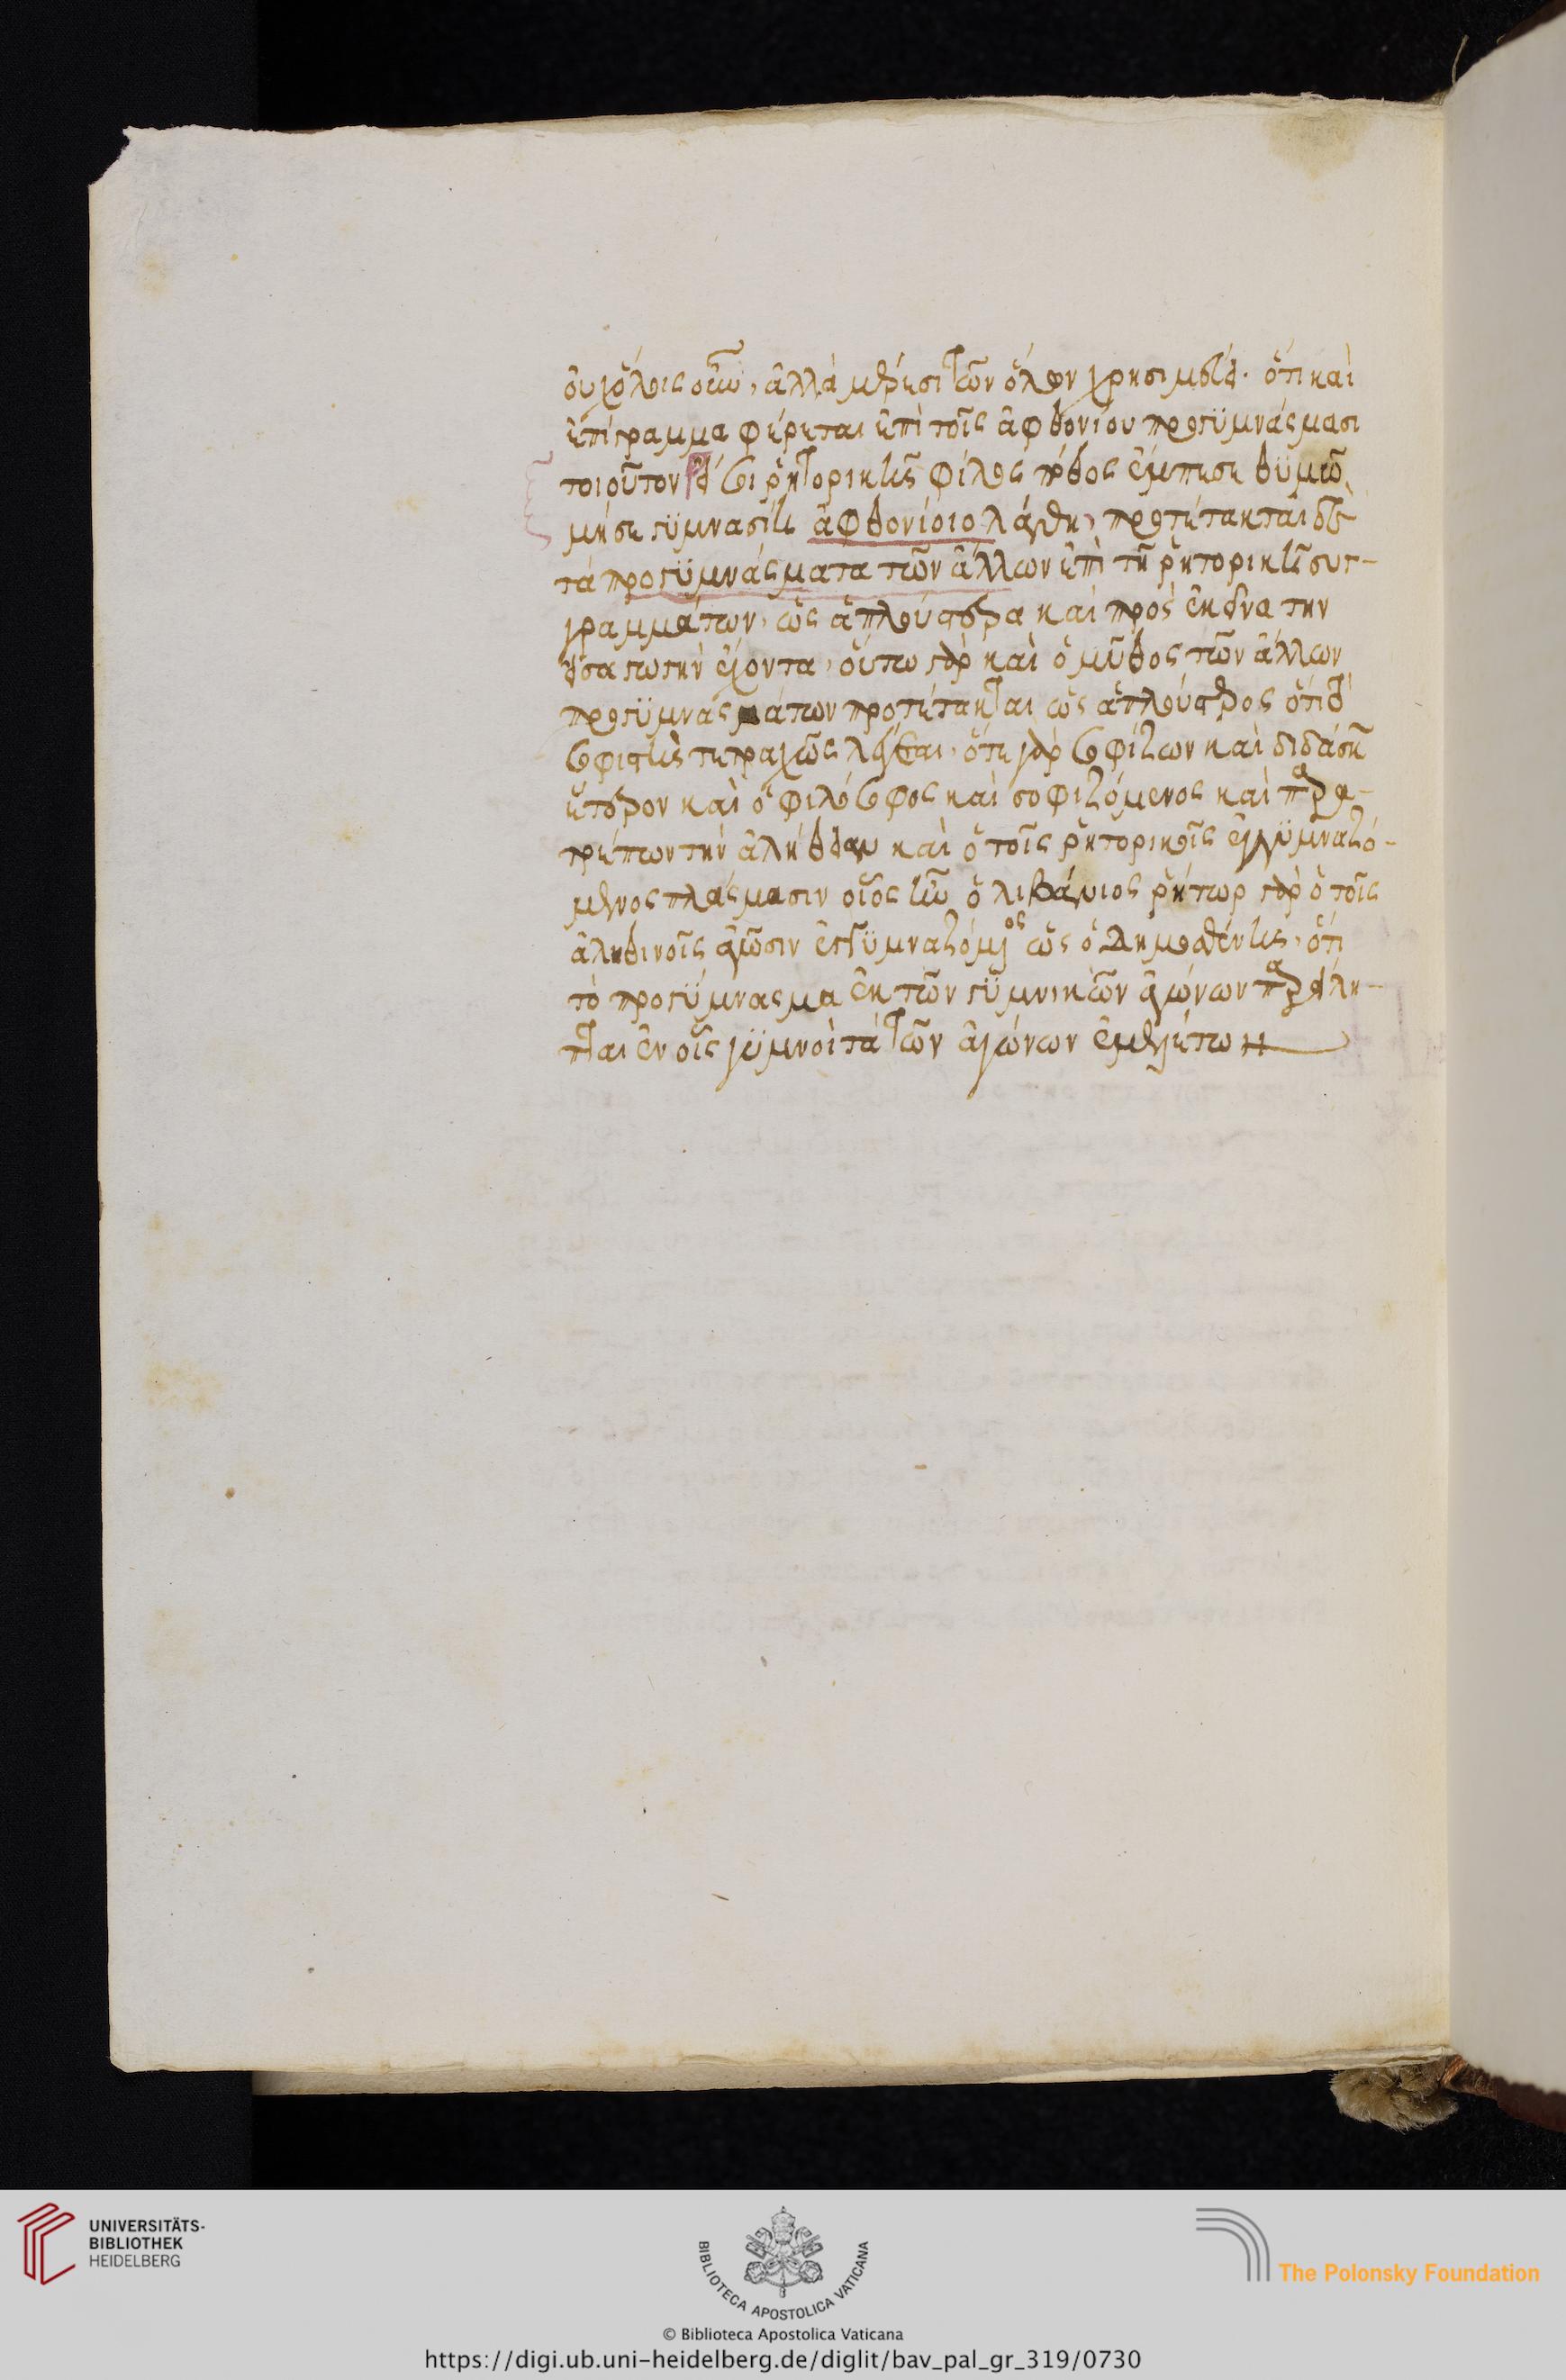 ἐπίγραμμα φέρεται ἐπὶ τοῖς ἀφθονίου προγϋμνάσμασι
τοιοῦτον εἴ σοι ῥητορικῆς φίλος πόθος ἔμπεσε θϋμῶ
μήσε γϋμνασίη ἀφθονίοιο λάθη, προτέτακται δὲ
τὰ προγϋμνάσματα τῶν ἄλλων ἐπὶ τῆ ῥητορικῆ συγ-
γραμμάτων, ὡς ἁπλούστερα καὶ πρὸς ἐκεῖνα τὴν
εἰσαγωγὴν ἔχοντα, οὕτω γὰρ καὶ ὁ μῦθος τῶν ἄλλων
προγϋμνασμάτων προτέτακται ὡς ἁπλούστερος ὅτι ὁ
σοφιστὴς τετραχῶς λέγεται, ὅτε γὰρ σοφίζων καὶ διδάσκ
ἕτερον καὶ ὁ φιλόσοφος καὶ σοφιζόμενος καὶ παρα-
τρέπων τὴν ἀλήθειαν καὶ ὁ τοῖς ῥητορικοῖς ἐγγϋμναζό-
μενος πλάσμασιν οἷος ἦν ὁ λιβάνιος ῥήτωρ γὰρ ὁ τοῖς
ἀληθινοῖς ἀγῶσιν ἐγγϋμναζόμενος ὡς ὁ Δημοσθένης, ὅτι
τὸ προγύμνασμα ἐκ τῶν γϋμνικῶν ἀγώνων παρείλη-
πται ἐν οἷς γϋμνοὶ τὰ τῶν ἀγώνων
UNIVERSITÄTS-
BIBLIOTHEK
HEIDELBERG
BIBLIOTECA APOSTOLICA VATICANA
The Polonsky Foundation
© Biblioteca Apostolica Vaticana
https://digi.ub.uni-heidelberg.de/diglit/bav_pal_gr_319/0730